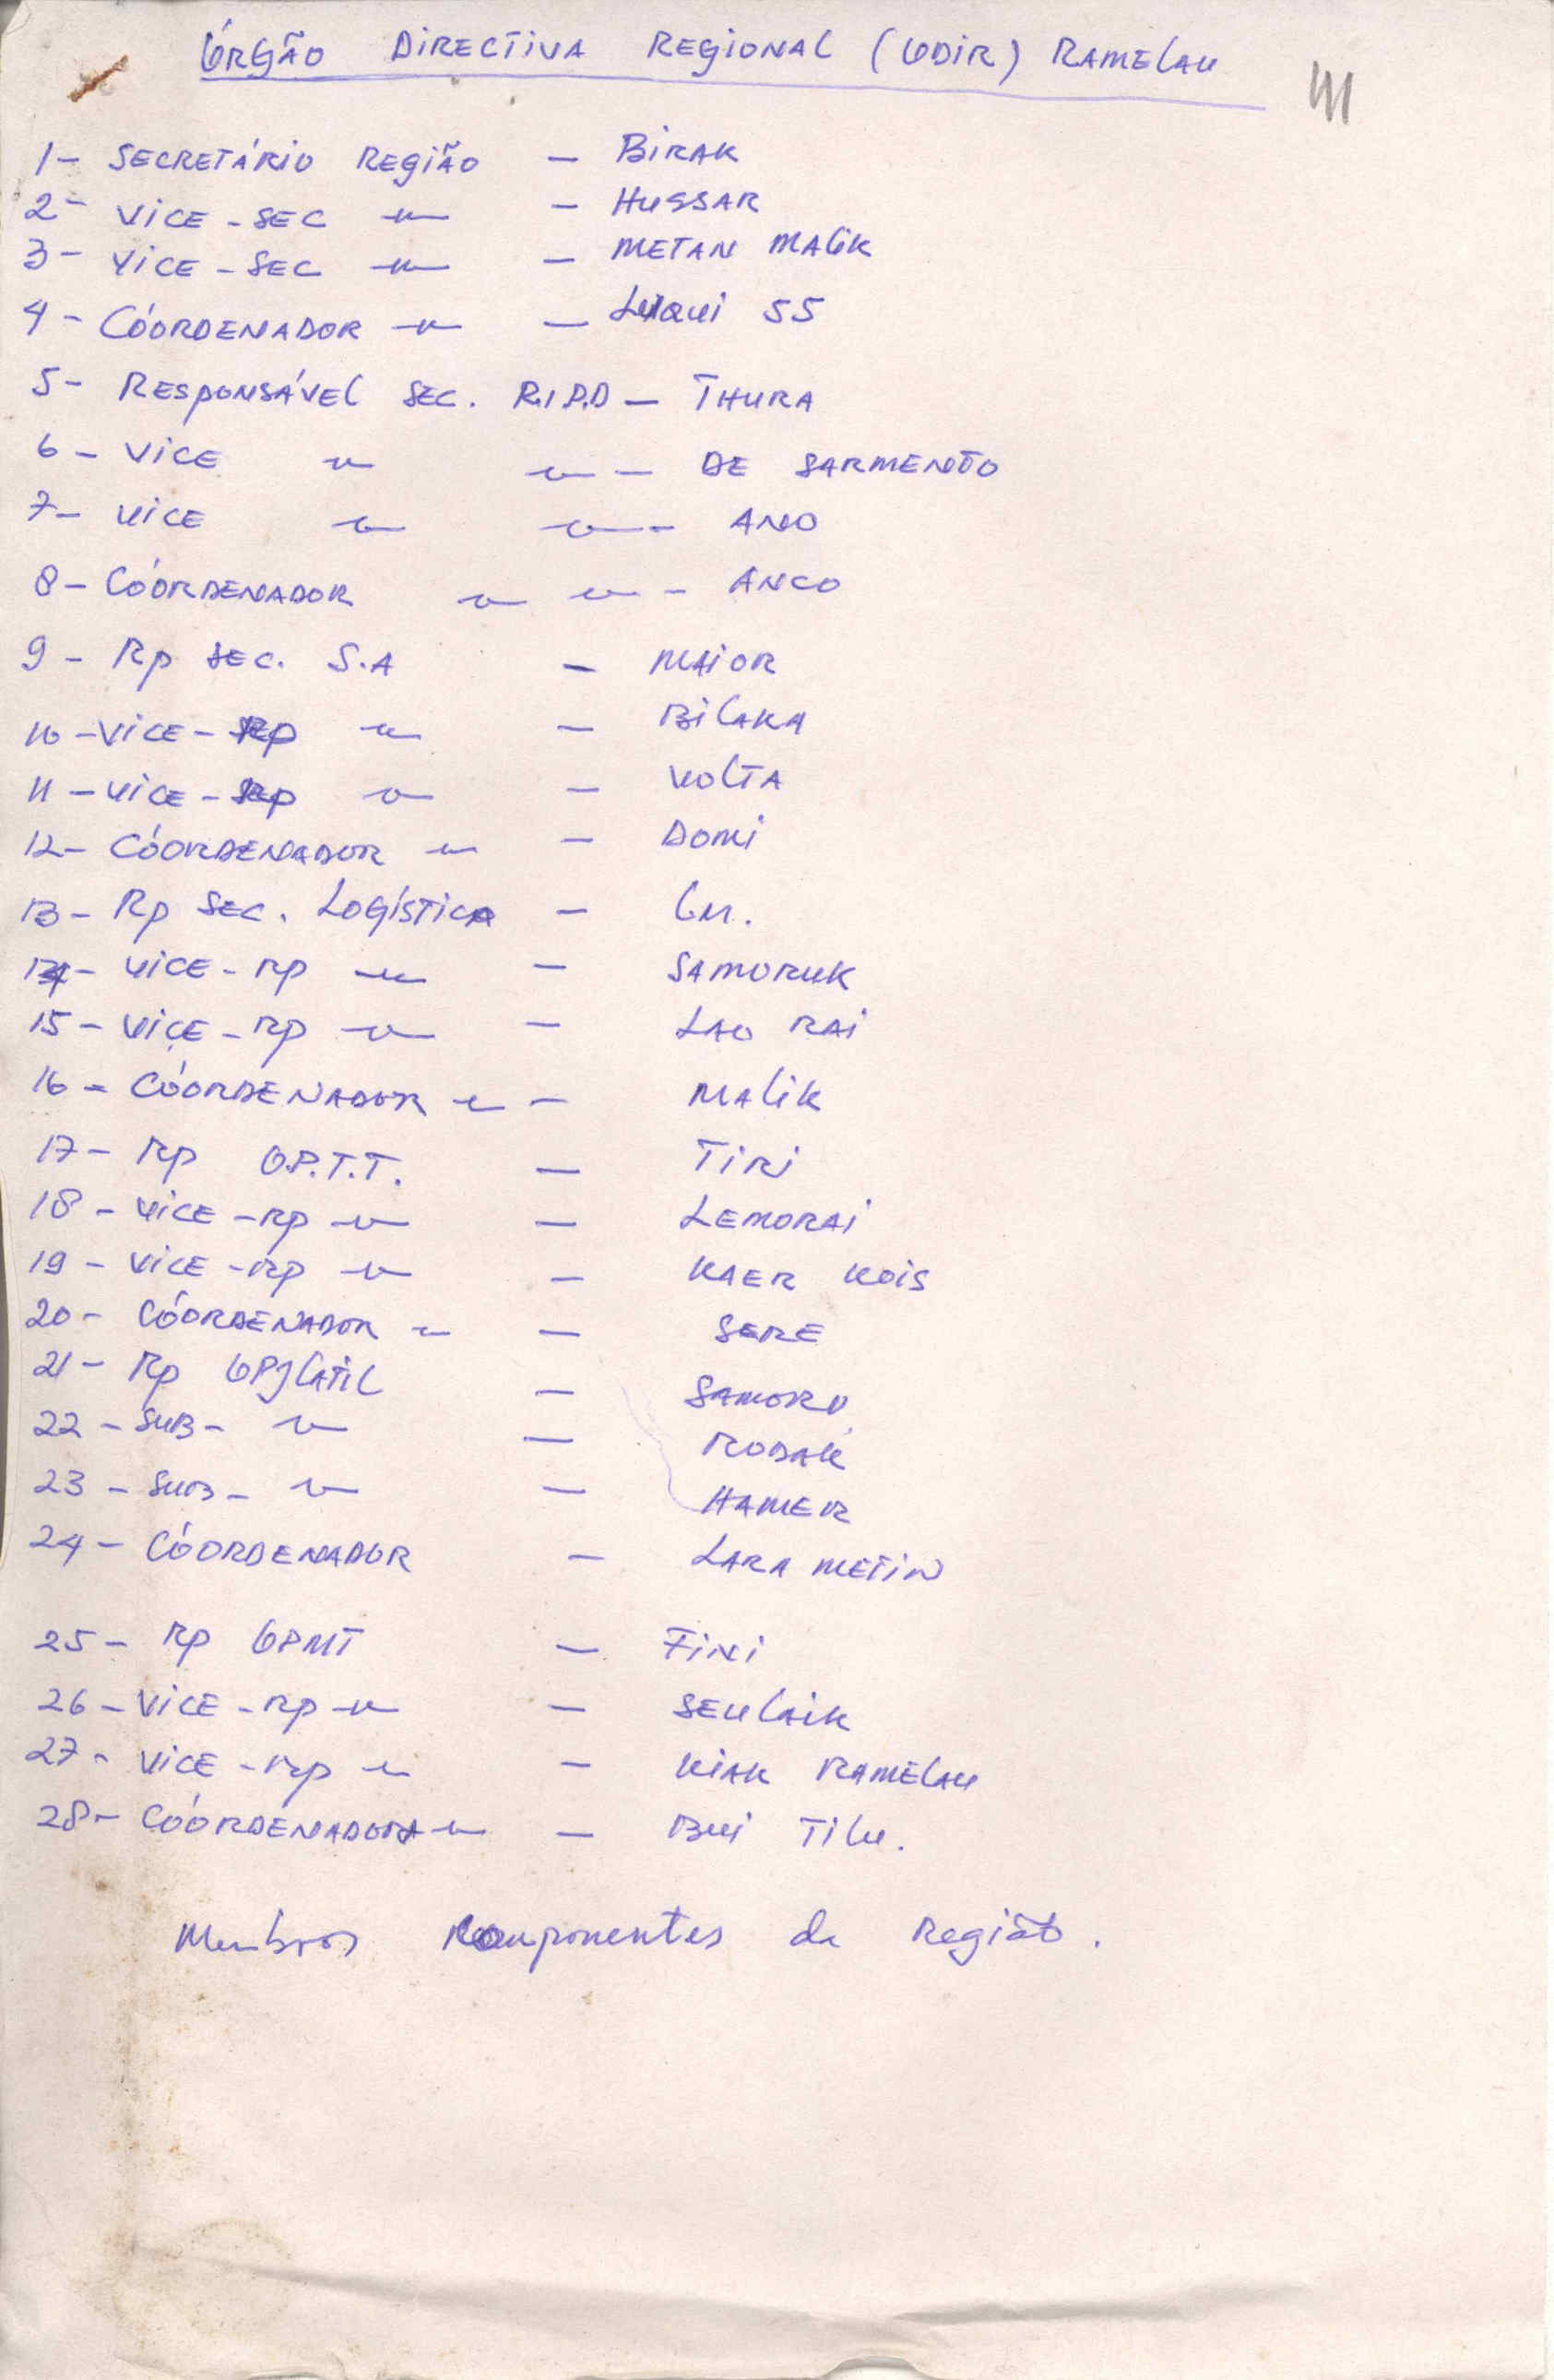 ÓRGÃO DIRECTIVA REGIONAL (ODIR) RAMELAU
1- SECRETÁRIO REGIÃO - BIRAK
2- VICE-SEC -u- - HUSSAR
3- VICE-SEC -u- - METAN MALIK
4- CÓORDENADOR -u- - LUQUI 55
5- RESPONSÁVEL SEC. R.I.P.D - THURA
6- VICE -u- -u- - DE SARMENTO
7- VICE -u- -u- - ANO
8- CÓORDENADOR -u- -u- - ANCO
9- Rp SEC. S.A - MAIOR
10-VICE-Rp -u- - BILAKA
11-VICE-Rp -u- - VOLTA
12- CÓORDENADOR -u- - DOMI
13- Rp SEC. LOGÍSTICA -
14- VICE-Rp -u- - SAMORUK
15- VICE-Rp -u- - LAO RAI
16- CÓORDENADOR -u- - MALIK
17- Rp O.P.T.T. - TIRI
18- VICE-Rp -u- - LEMORAI
19- VICE-Rp -u- - KAER KOIS
20- CÓORDENADOR -u- - SERE
21- Rp OPJLATIL - SAMORO
22- SUB- -u- - RODAK
23- SUB- -u- - HAMER
24- CÓORDENADOR - LARA METIN
25- Rp OPMT - FINI
26- VICE-Rp -u- - SEULAIK
27- VICE-Rp -u- - KIAK RAMELAU
28- CÓORDENADORA -u- - BUI TILU.
Membros Componentes da Região.